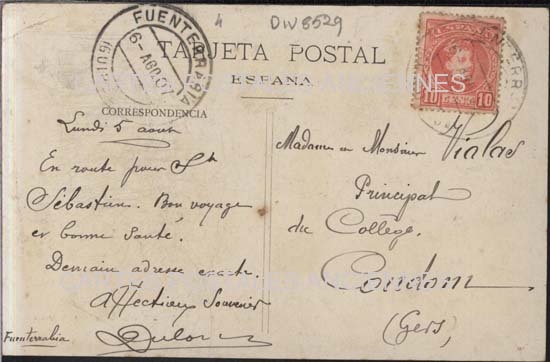 4
DIV 8529
FUENTERRABIA
6-AGO-07
TARJETA POSTAL
ESPAÑA
10 10
CORRESPONDENCIA
Lundi 5 aout
En route pour St
Sébastien. Bon voyage
et bonne santé.
Demain adresse exacte.
Affectueux Souvenir
Fuenterrabia
Madame et Monsieur Vialas
Principal
du Collège.
Condom
(Gers)